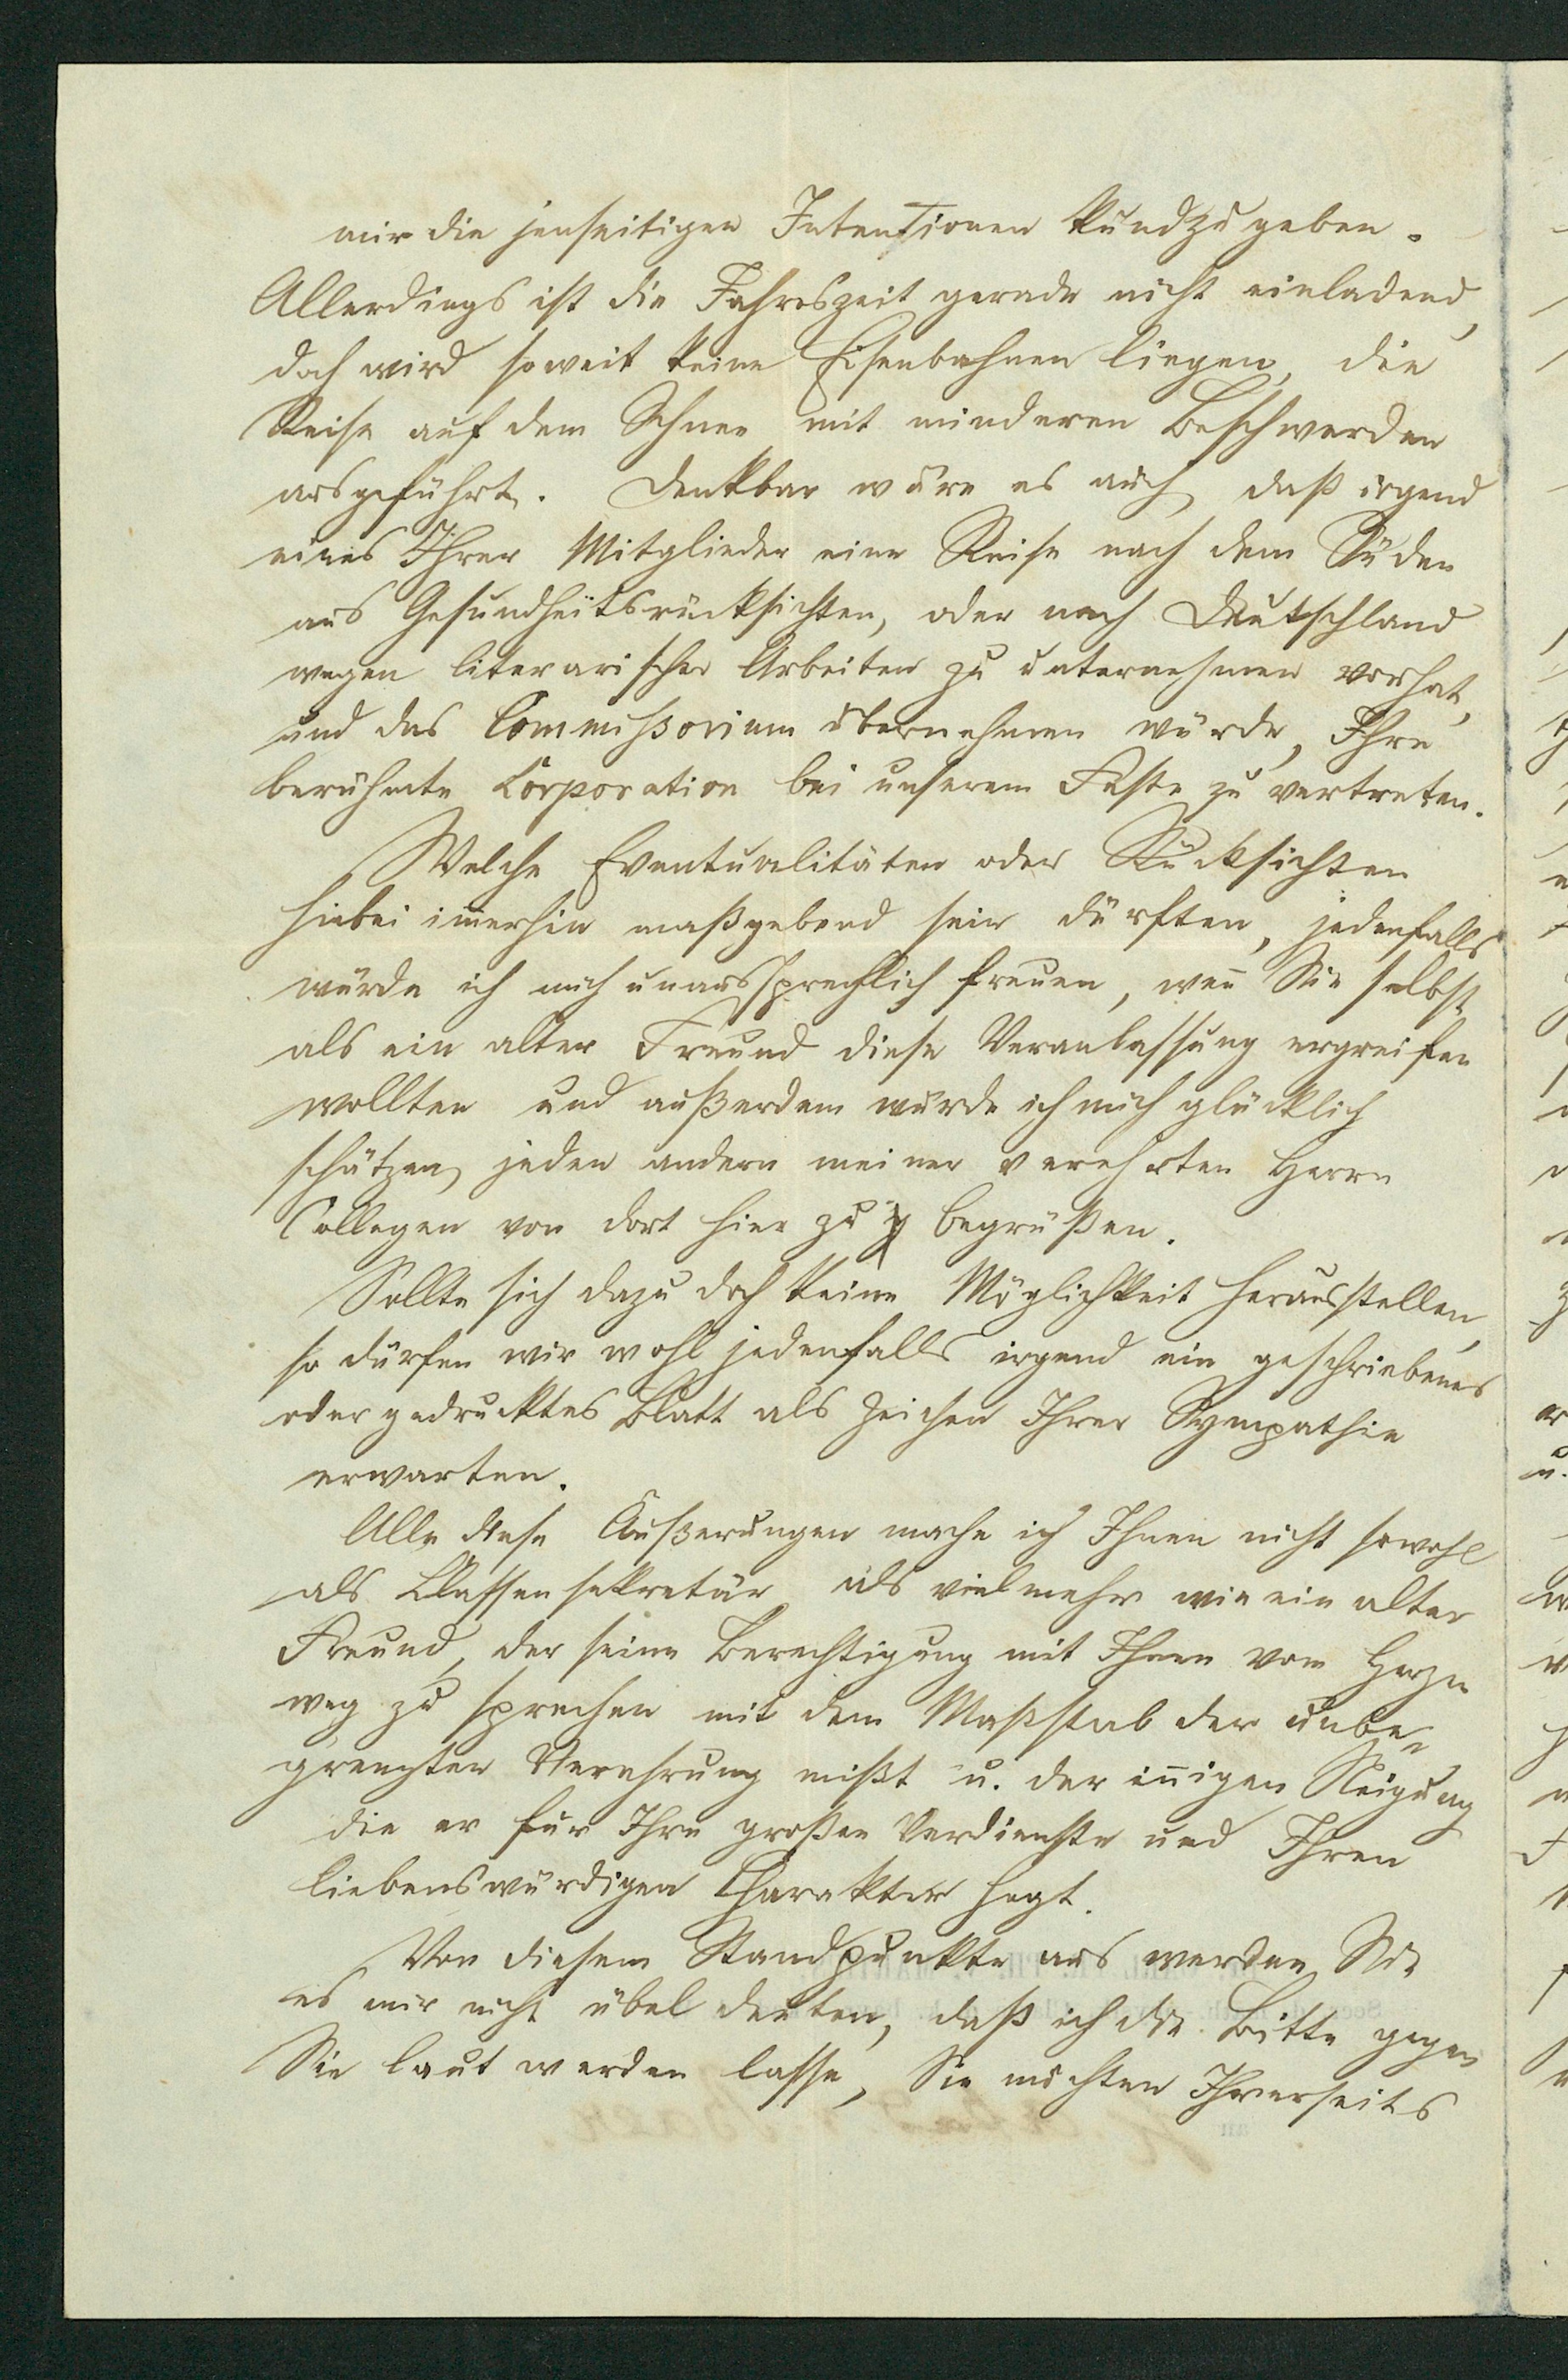 mir die jenseitigen Intentionen kundzugeben.
Allerdings ist die Jahreszeit gerade nicht einladend,
doch wird soweit keine Eisenbahnen liegen, die
Reise auf dem Schnee mit minderen Beschwerden
ausgeführt. Denkbar wäre es auch, daß irgend
eines Ihrer Mitglieder eine Reise nach dem Süden
aus Gesundheitsrücksichten, oder nach Deutschland
wegen literarischer Arbeiten zu unternehmen vorhat,
und das Commißorium übernehmen würde, Ihre
berühmte Corporation bei unserem Feste zu vertreten.
Welche Eventualitäten oder Rücksichten
hiebei im̄erhin maßgebend sein dürften, jedenfalls
würde ich mich unaussprechlich freuen, wen̄ Sie selbst
als ein alter Freund diese Veranlassung ergreifen
wollten und außerdem würde ich mich glücklich
schätzen, jeden andern meiner verehrten Herrn
Collegen von dort hier zu begrüßen.
Sollte sich dazu doch keine Möglichkeit herausstellen,
so dürfen wir wohl jedenfalls irgend ein geschriebenes
oder gedrucktes Blatt als Zeichen Ihrer Sympathie
erwarten.
Alle diese Äußerungen mache ich Ihnen nicht sowohl
als Classensekretär als vielmehr wie ein alter
Freund, der seine Berechtigung mit Ihnen vom Herzen
weg zu sprechen mit dem Maßstab der unbe-
grenzten Verehrung mißt u. der in̄igen Neigung
die er für Ihre großen Verdienste und Ihren
liebenswürdigen Charakter hegt.
Von diesem Standpunkte aus werden Sie
es mir nicht übel deuten, daß ich die Bitte gegen
Sie laut werden lasse, Sie möchten Ihrerseits